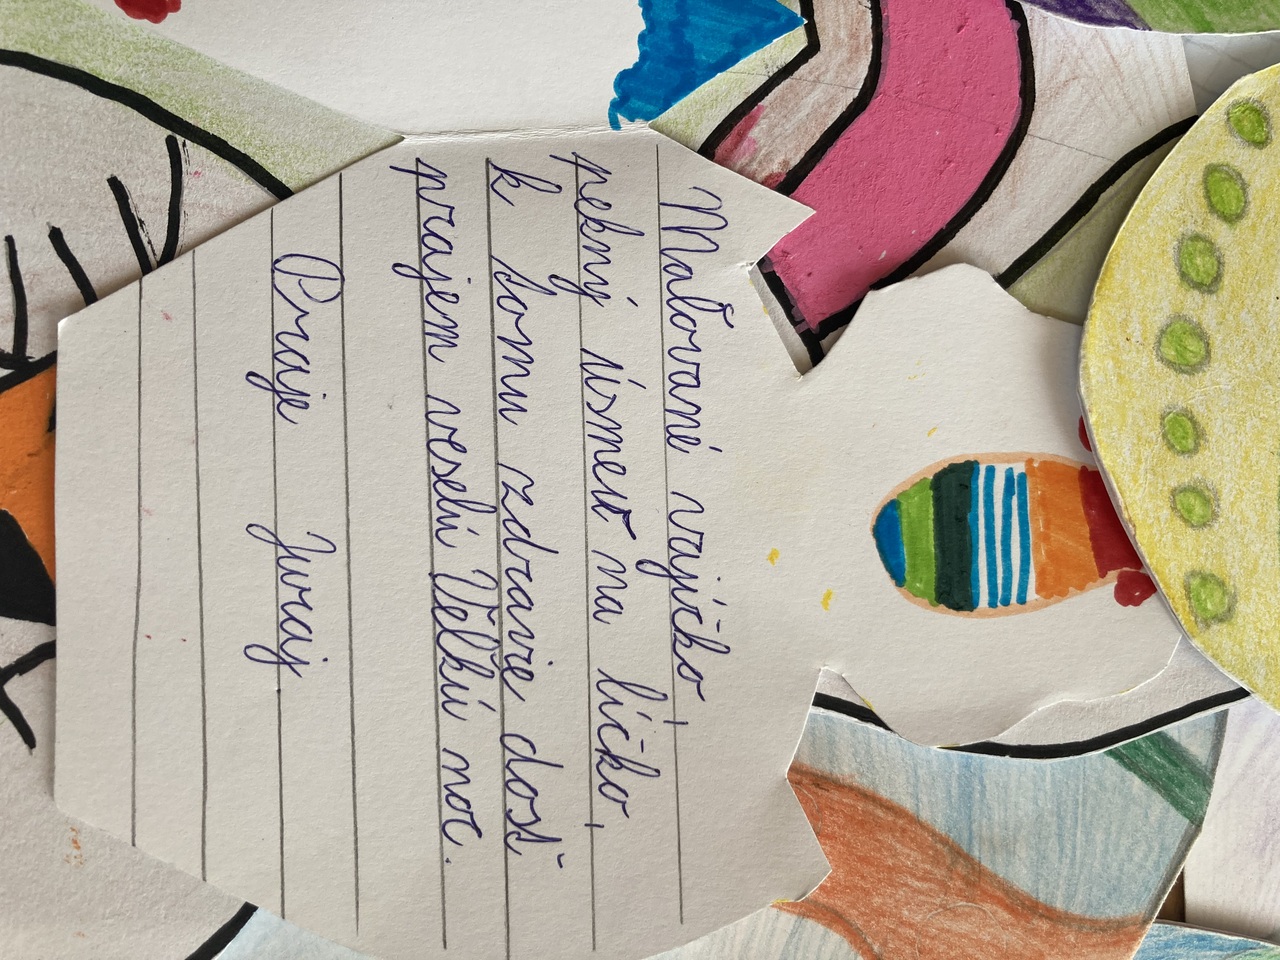 Maľované vajíčko,
pekný úsmew na líčko,
k tomu zdravie dosť
prajem veselú Veľkú noc.
Praje Juraj